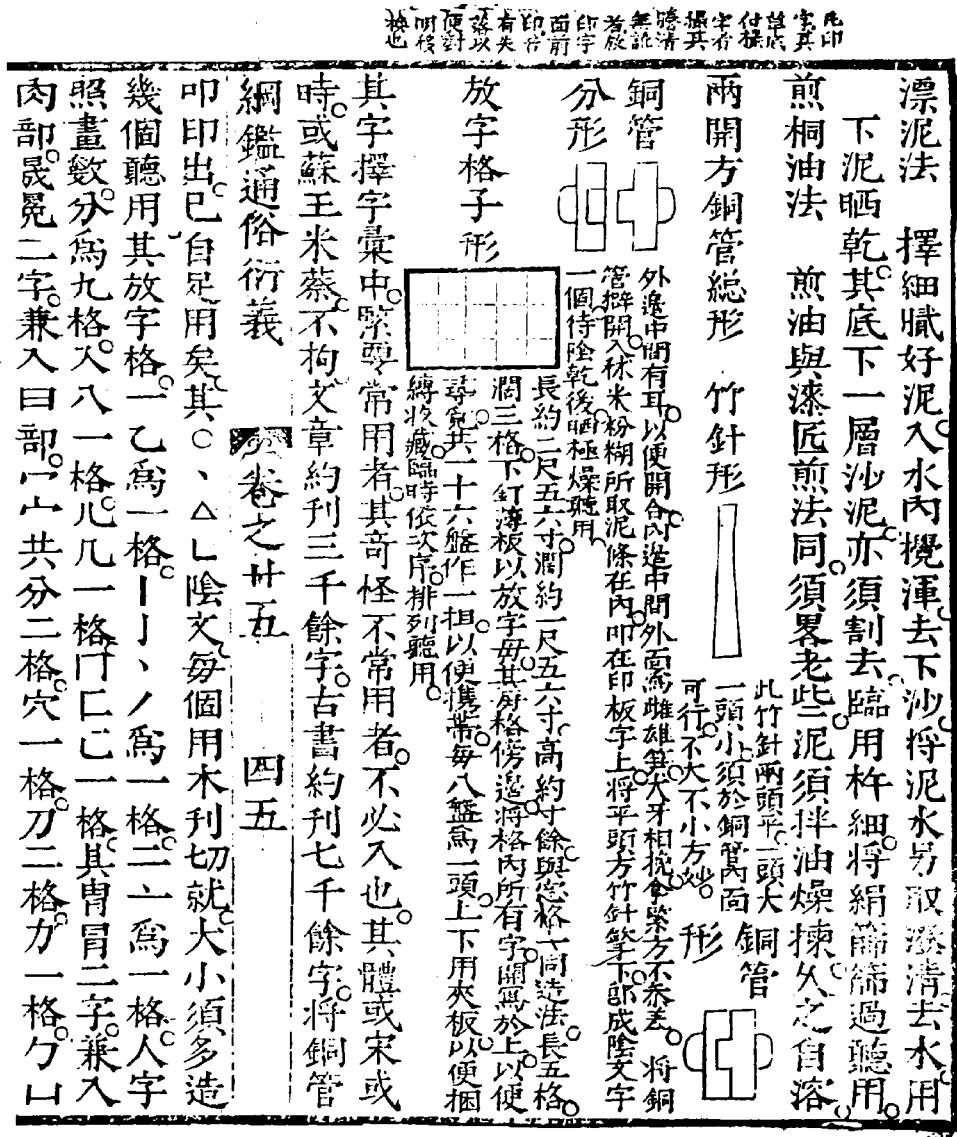 凡印
字其
草底
付樣
字看
攝其
清
無訛
若放
印字
面前
印行
有失
落以
便對
明
換也
漂泥法　擇細膩好泥入水內攪渾去下沙將泥水另取澄清去水用
下泥晒乾其底下一層沙泥亦須割去臨用杵細將絹篩篩過聽用
煎桐油法　煎油與漆匠煎法同須畧老些泥須拌油燥揉久之自溶
兩開方銅管總形　竹針形
此竹針兩頭平一頭大
一頭小須於銅管內面
可行不大不小方妙
銅管
形
銅管
分形
外邊中間有耳以便開合內邊中間外面爲雌雄筍犬牙相挽拿緊方不叅差　將銅
管擗開入秫米粉糊所取泥條在內叩在印板字上將平頭方竹針擎下郎成陰文字
一個待陰乾後晒極燥聽用
放字格子形
長約二尺五六寸濶約一尺五六寸高約寸餘與窓格一同造法長五格
濶三格下釘薄板以放字毋其每格傍邊將格內所有字開寫於上以便
尋覓共一十六盤作一担以便携帶每八盤爲一頭上下用夾板以便捆
縛收藏臨時依次序排列聽用
其字擇字彙中緊要常用者其奇怪不常用者不必入也其體或宋或
時或蘇王米蔡不拘文章約刊三千餘字古書約刊七千餘字將銅管
綱鑑通俗衍義　卷之廿五　四五
叩印出已自足用矣其○丶△乚陰文每個用木刊切就大小須多造
幾個聽用其放字格一乙爲一格丨亅丶丿爲一格二亠爲一格人字
照畫數分爲九格入八一格儿几一格冂匚匸一格其胄冒二字兼入
肉部晟冕二字兼入曰部冖宀共分二格穴一格刀二格力一格勹凵